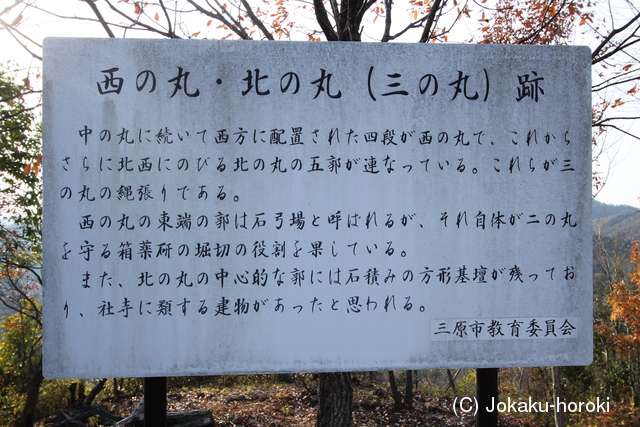 西の丸・北の丸(三の丸)跡
中の丸に続いて西方に配置された四段が西の丸で、これから
さらに北西にのびる北の丸の五郭が連なっている。これらが三
の丸の縄張りである。
西の丸の東端の郭は石弓場と呼ばれるが、それ自体が二の丸
を守る箱薬研の堀切の役割を果している。
また、北の丸の中心的な郭には石積みの方形基壇が残ってお
り、社寺に類する建物があったと思われる。
三原市教育委員会
(C) Jokaku-horoki